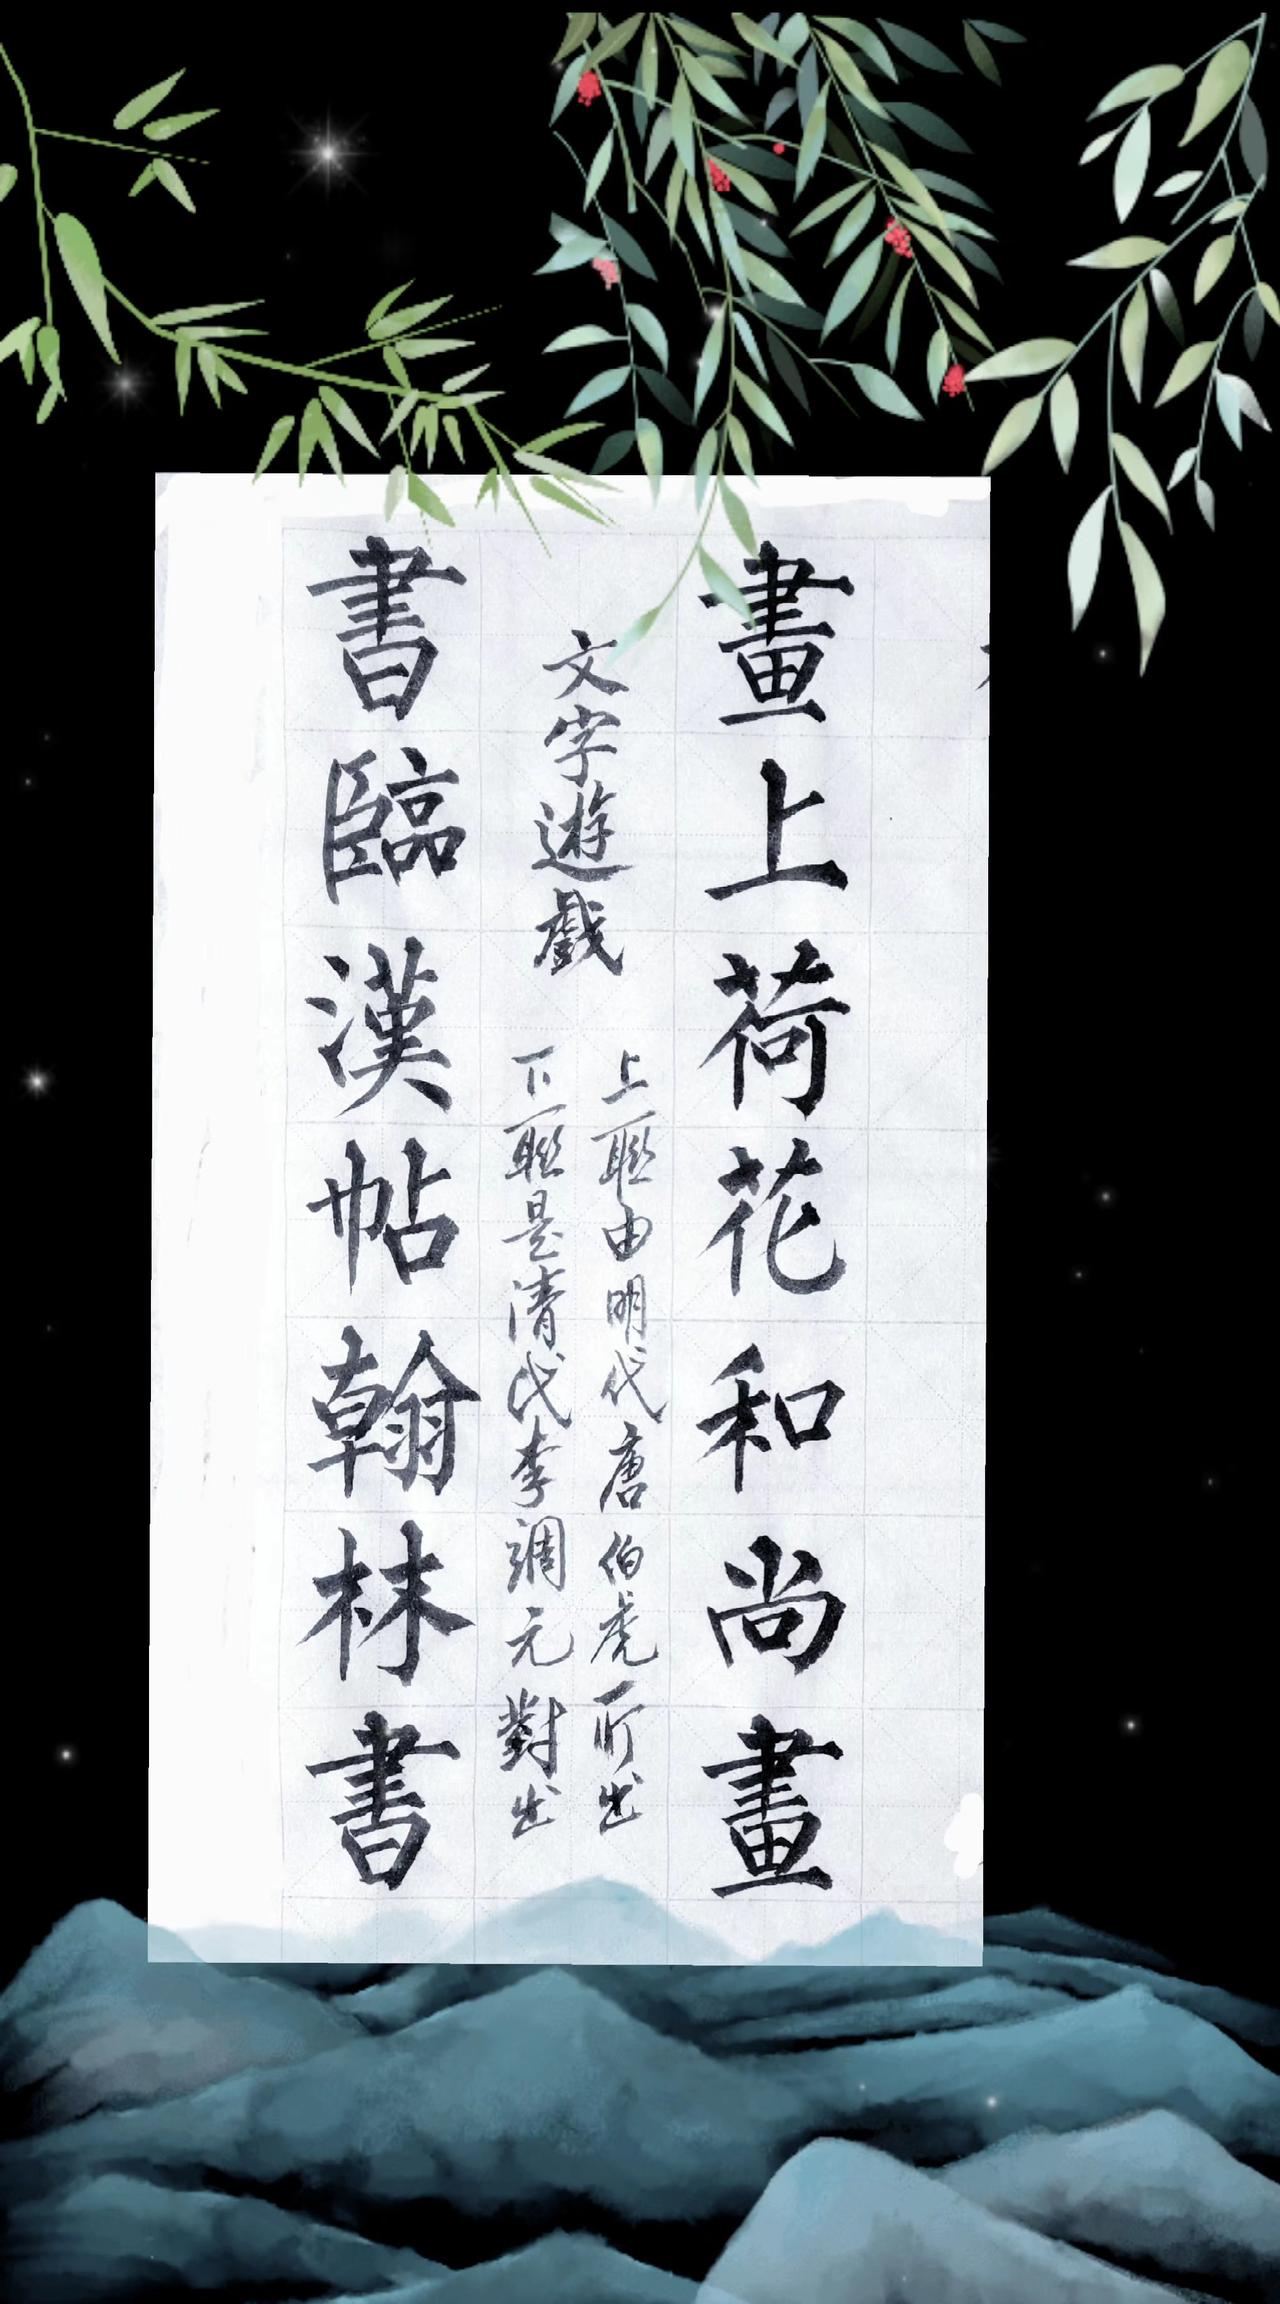 畫上荷花和尚畫
文字遊戲
上聯由明代唐伯虎所出
下聯是清代李調元對出
書臨漢帖翰林書